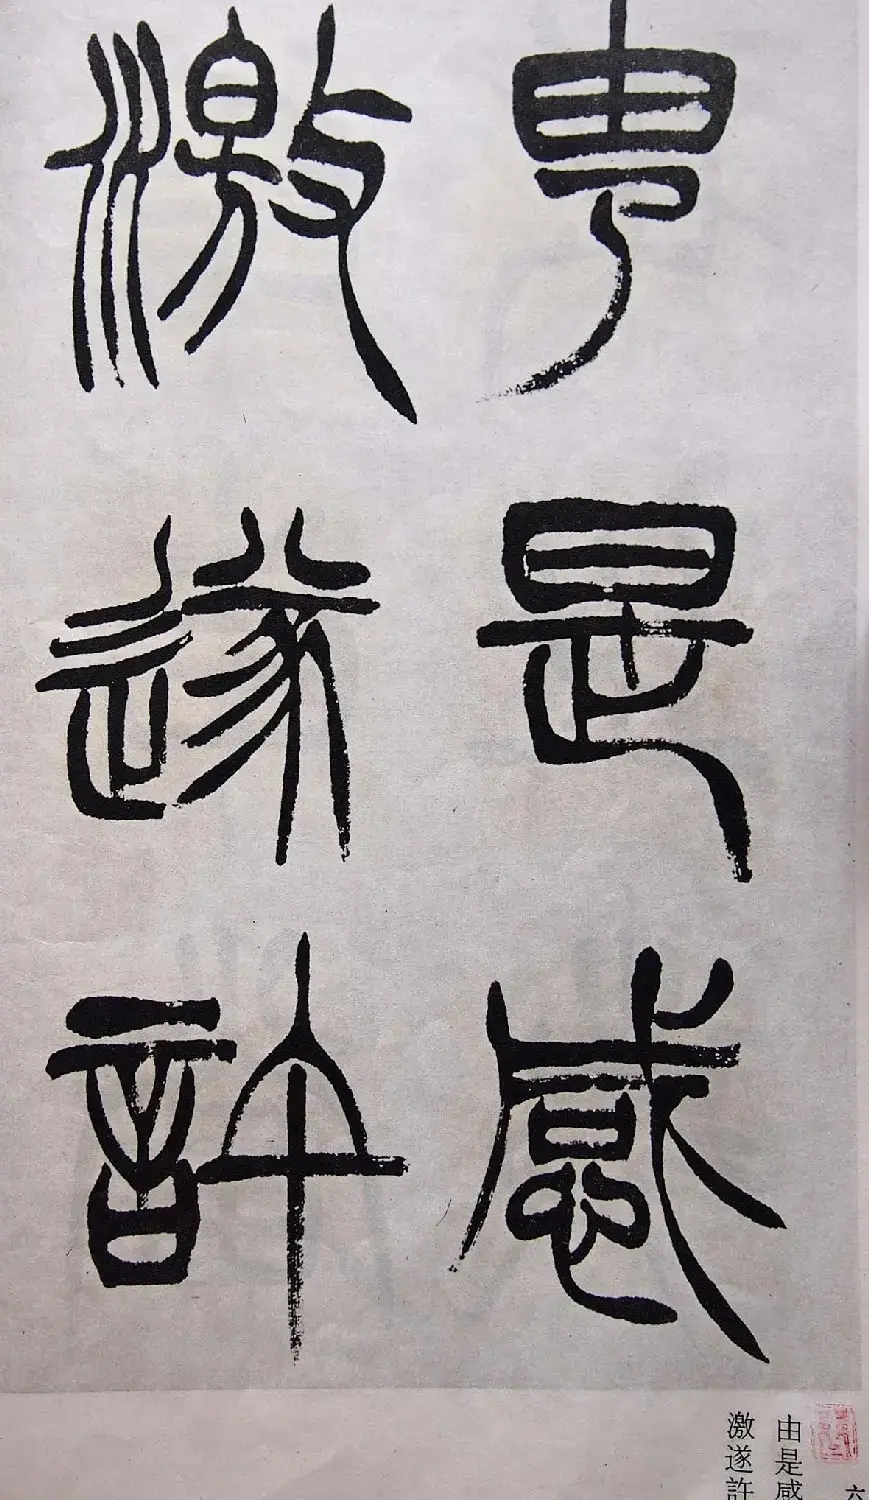 由是感
激遂許
由是感
激遂許
六